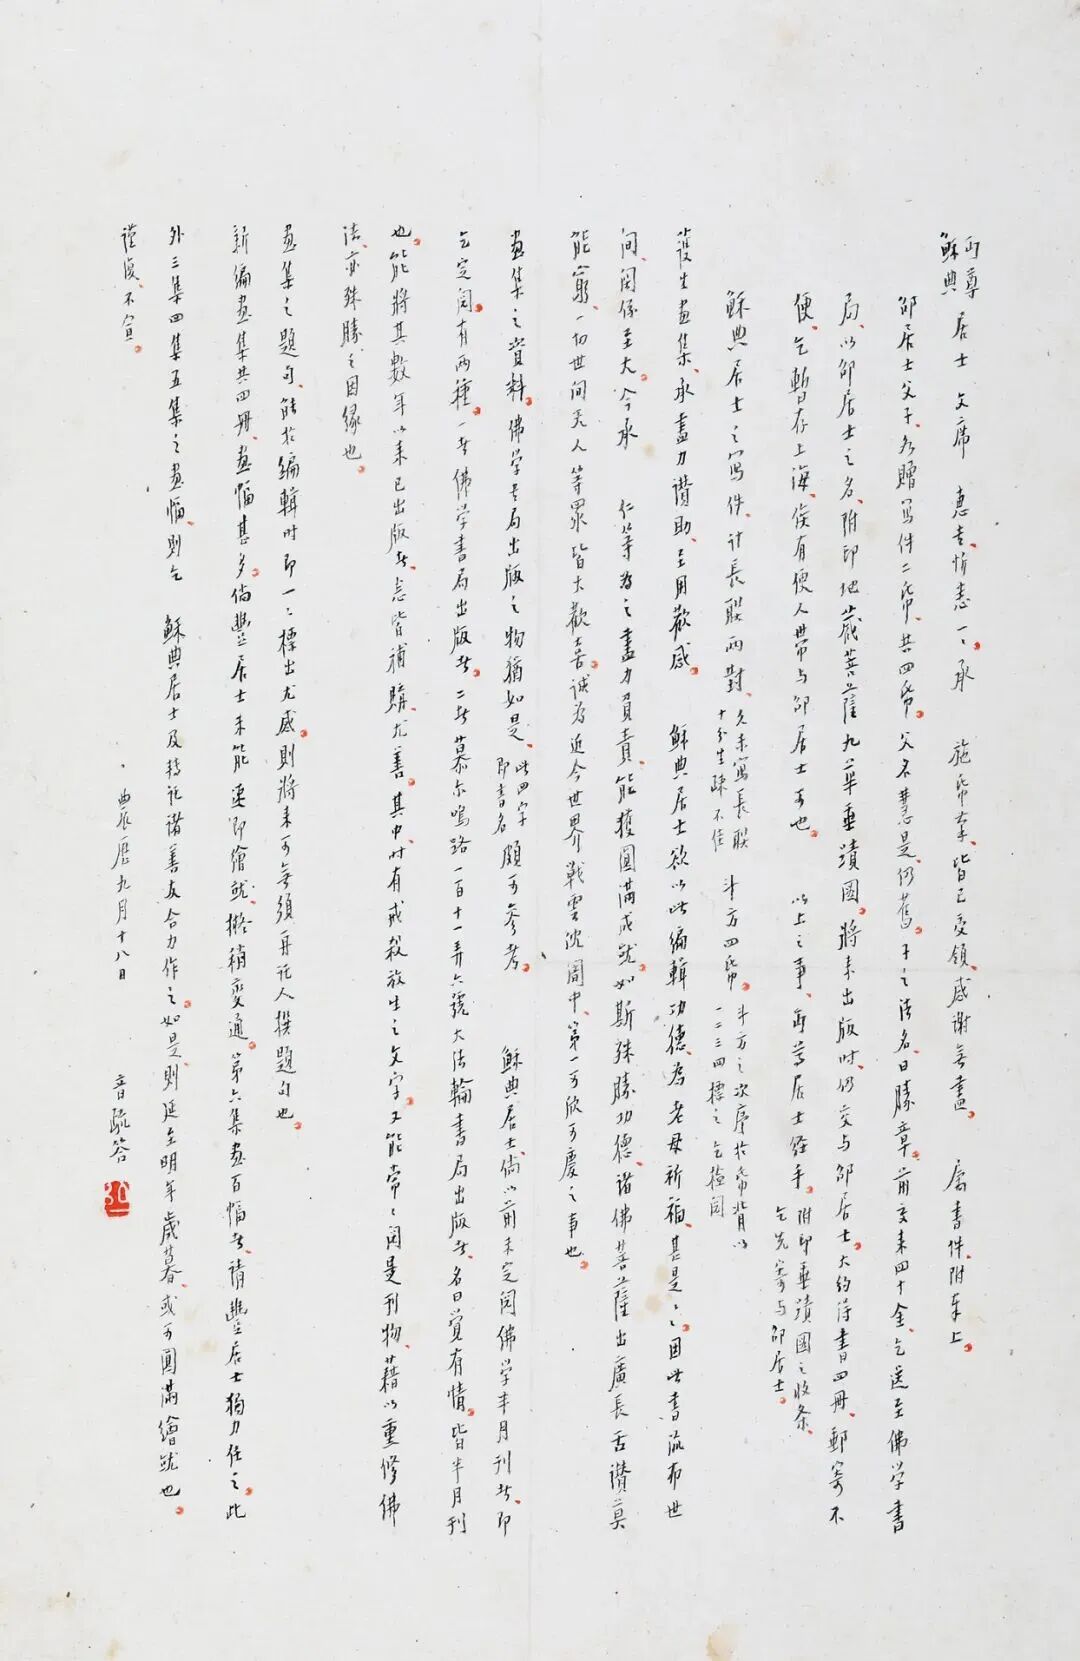 丏尊
穌典居士文席 惠書忻悉一一、承 施帋等、皆已受領、感謝無盡。 屬書件、附奉上。
邵居士父子、各贈寫件二帋、共四帋。父名慧是、仍舊。子之法名、曰勝章。前交来四十金、乞送至佛学書
局、以邵居士之名、附印地藏菩薩九華垂蹟圖。將来出版时、仍交与邵居士。大約得書四冊、郵寄不
便、乞暫存上海、俟有便人带与邵居士可也。 以上之事、丏尊居士經手。附印垂蹟圖之收条、
乞先寄与邵居士。
穌典居士之寫件、计長联兩對、久未寫長联
十分生疎不佳 斗方四帋。斗方之次序於帋背以
一二三四標之乞檢閱
護生畫集、承盡力讚助、至用歡感。 穌典居士欲以此編輯功德、為老母祈福、甚是甚是。因此書流布世
间、関係至大。今承 仁等为之盡力負責、能獲圓滿成就。如斯殊勝功德、諸佛菩薩出廣長舌讚莫
能窮、一切世间天人等眾皆大歡喜。诚为近今世界戰雲沈闇中、第一可欣可慶之事也。
畫集之資料。佛学書局出版之物猶如是、此四字
即書名 頗可參考。 穌典居士、倘以前未定閱佛学半月刊者、即
乞定閱。有兩種。一者佛学書局出版者。二者慕尔鳴路一百十一弄六號大法輪書局出版者、名曰覚有情。皆半月刊
也。能將其數年以来已出版者、悉皆補購、尤善。其中、时有戒殺放生之文字。又能常常閱是刊物、藉以重修佛
法、亦殊勝之因緣也。
畫集之題句、能於編輯时即一一標出尤感。則將来可無須再託人撰題句也。
新編畫集共四冊、畫幅甚多。倘豐居士未能速即繪就、擬稍變通。第六集畫百幅者、請豐居士獨力任之。此
外三集四集五集之畫幅、則乞 穌典居士及轉託諸善友合力作之。如是、則延至明年歲暮、或可圓滿繪就也。
謹復、不宣。
農曆九月十八日 音疏答